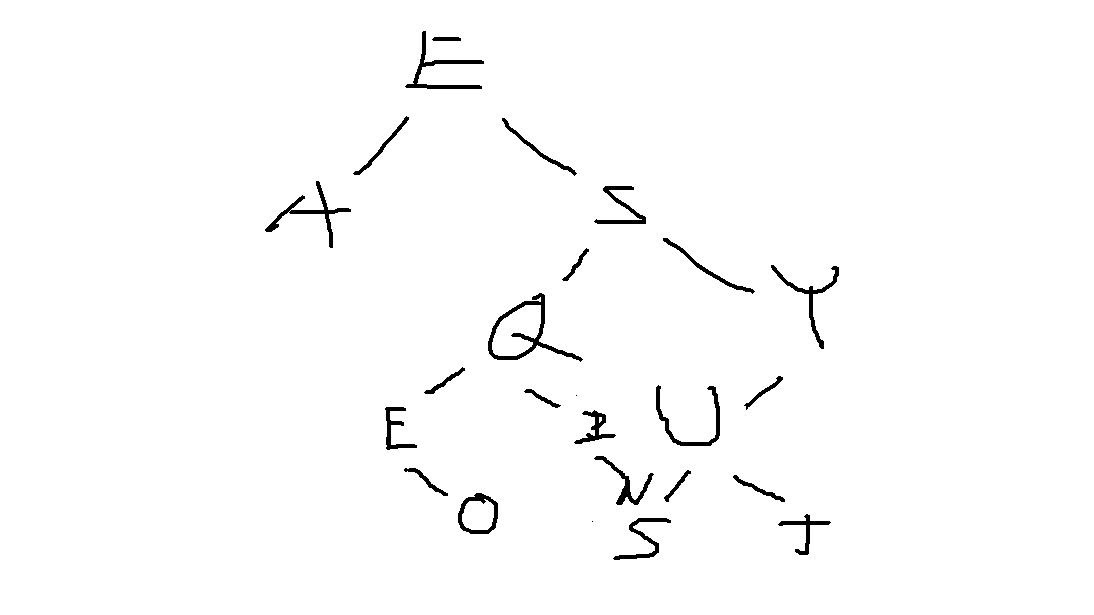 E
A S
Q Y
E I U
O N S T